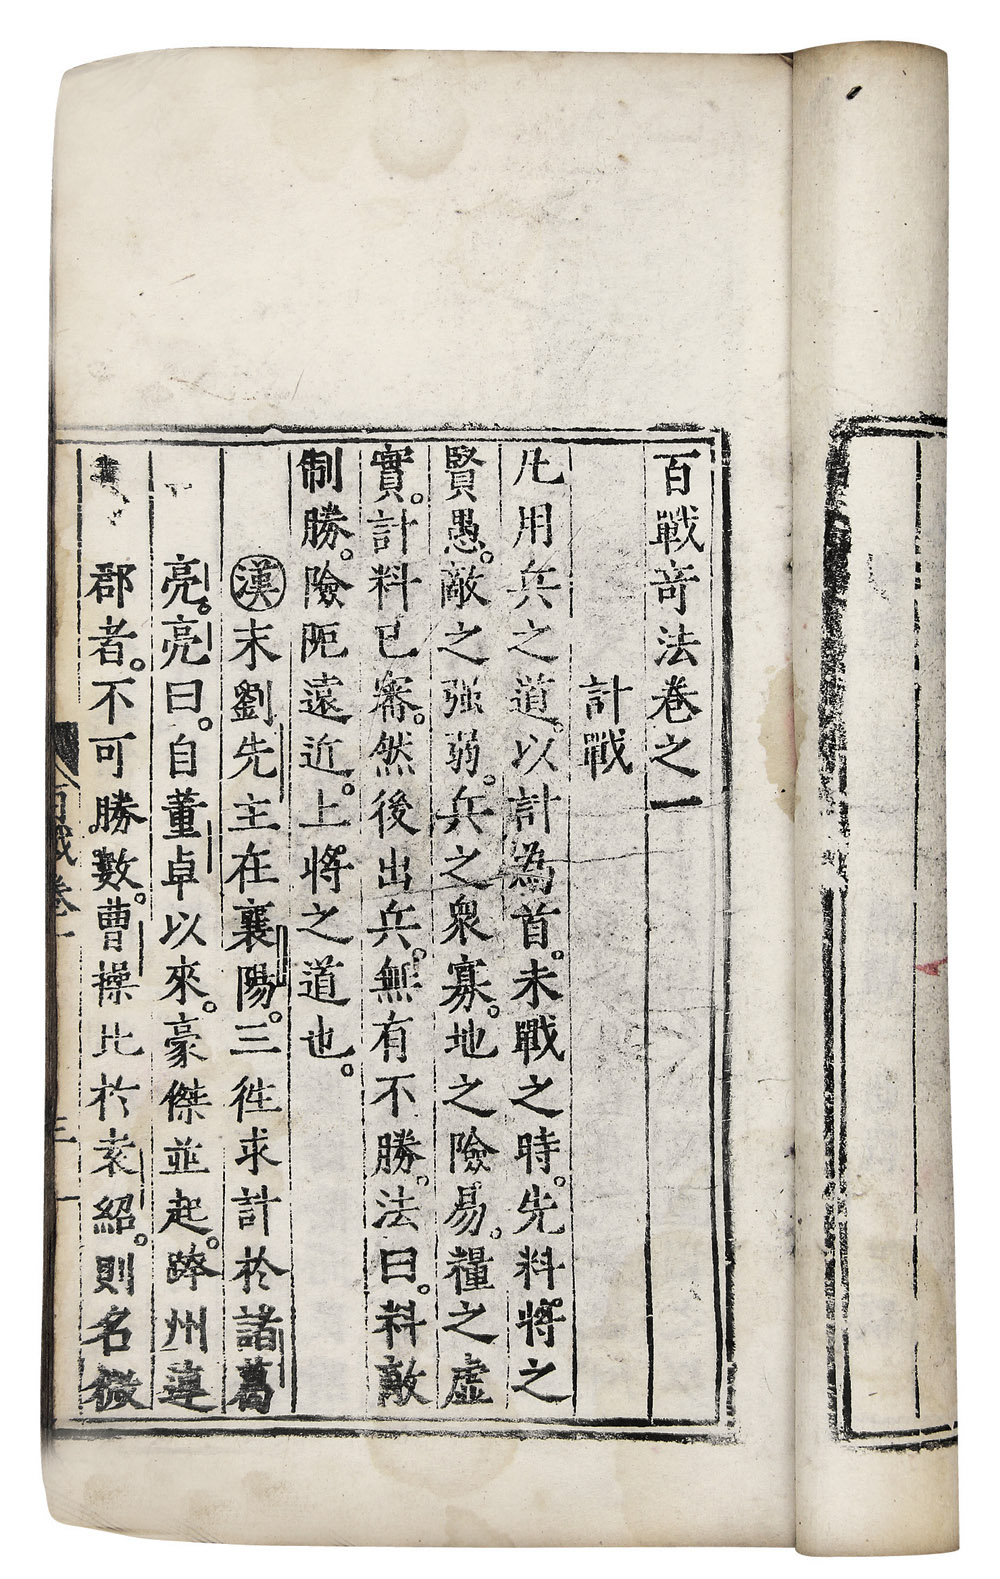 百戰竒法卷之一
計戰
凡用兵之道。以計為首。未戰之時。先料將之
賢愚。敵之强弱。兵之衆寡。地之險易。糧之虛
實。計料已審。然後出兵。無有不勝。法曰。料敵
制勝。險阨遠近。上將之道也。
漢末劉先主在襄陽。三徃求計於諸葛
亮。亮曰。自董卓以來。豪傑並起。跨州連
郡者。不可勝數。曹操比於袁紹。則名微
百戰卷一
三